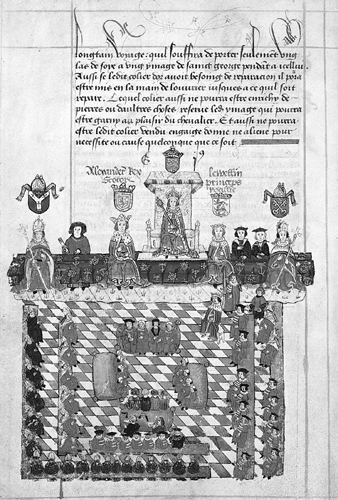 longtain voyage: quil souffira de porter seulement vng
las de soye a vng ymage de sainct george pendāt a icelluy.
Aussi se ledit colier dor auoit besoing de reparacion il pora
estre mis en la main de louurier iusques a ce quil soit
repare. Lequel colier aussi ne pourra estre enrichy de
pierres ou daultres choses reserue les ymage qui pourra
estre garny au plaisir du cheualier. Et aussi ne pourra
estre ledit colier vendu engaige donne ne aliene pour
necessite ou cause quelconque que ce soit
Alexander Rex
Scotor
Lewellin
princeps
Wallie